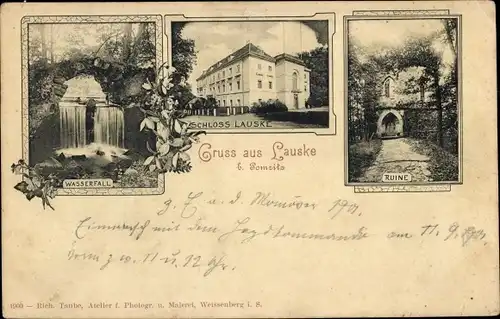 WASSERFALL
SCHLOSS LAUSKE
RUINE
Gruss aus Lauske
b. Pommritz
g. E. a. d. Manöver 1901.
mit dem Jagdkommando am 11.9.
vorm zw. 11 u. 12 Uhr.
1960 – Rich. Taube, Atelier f. Photogr. u. Malerei, Weissenberg i. S.